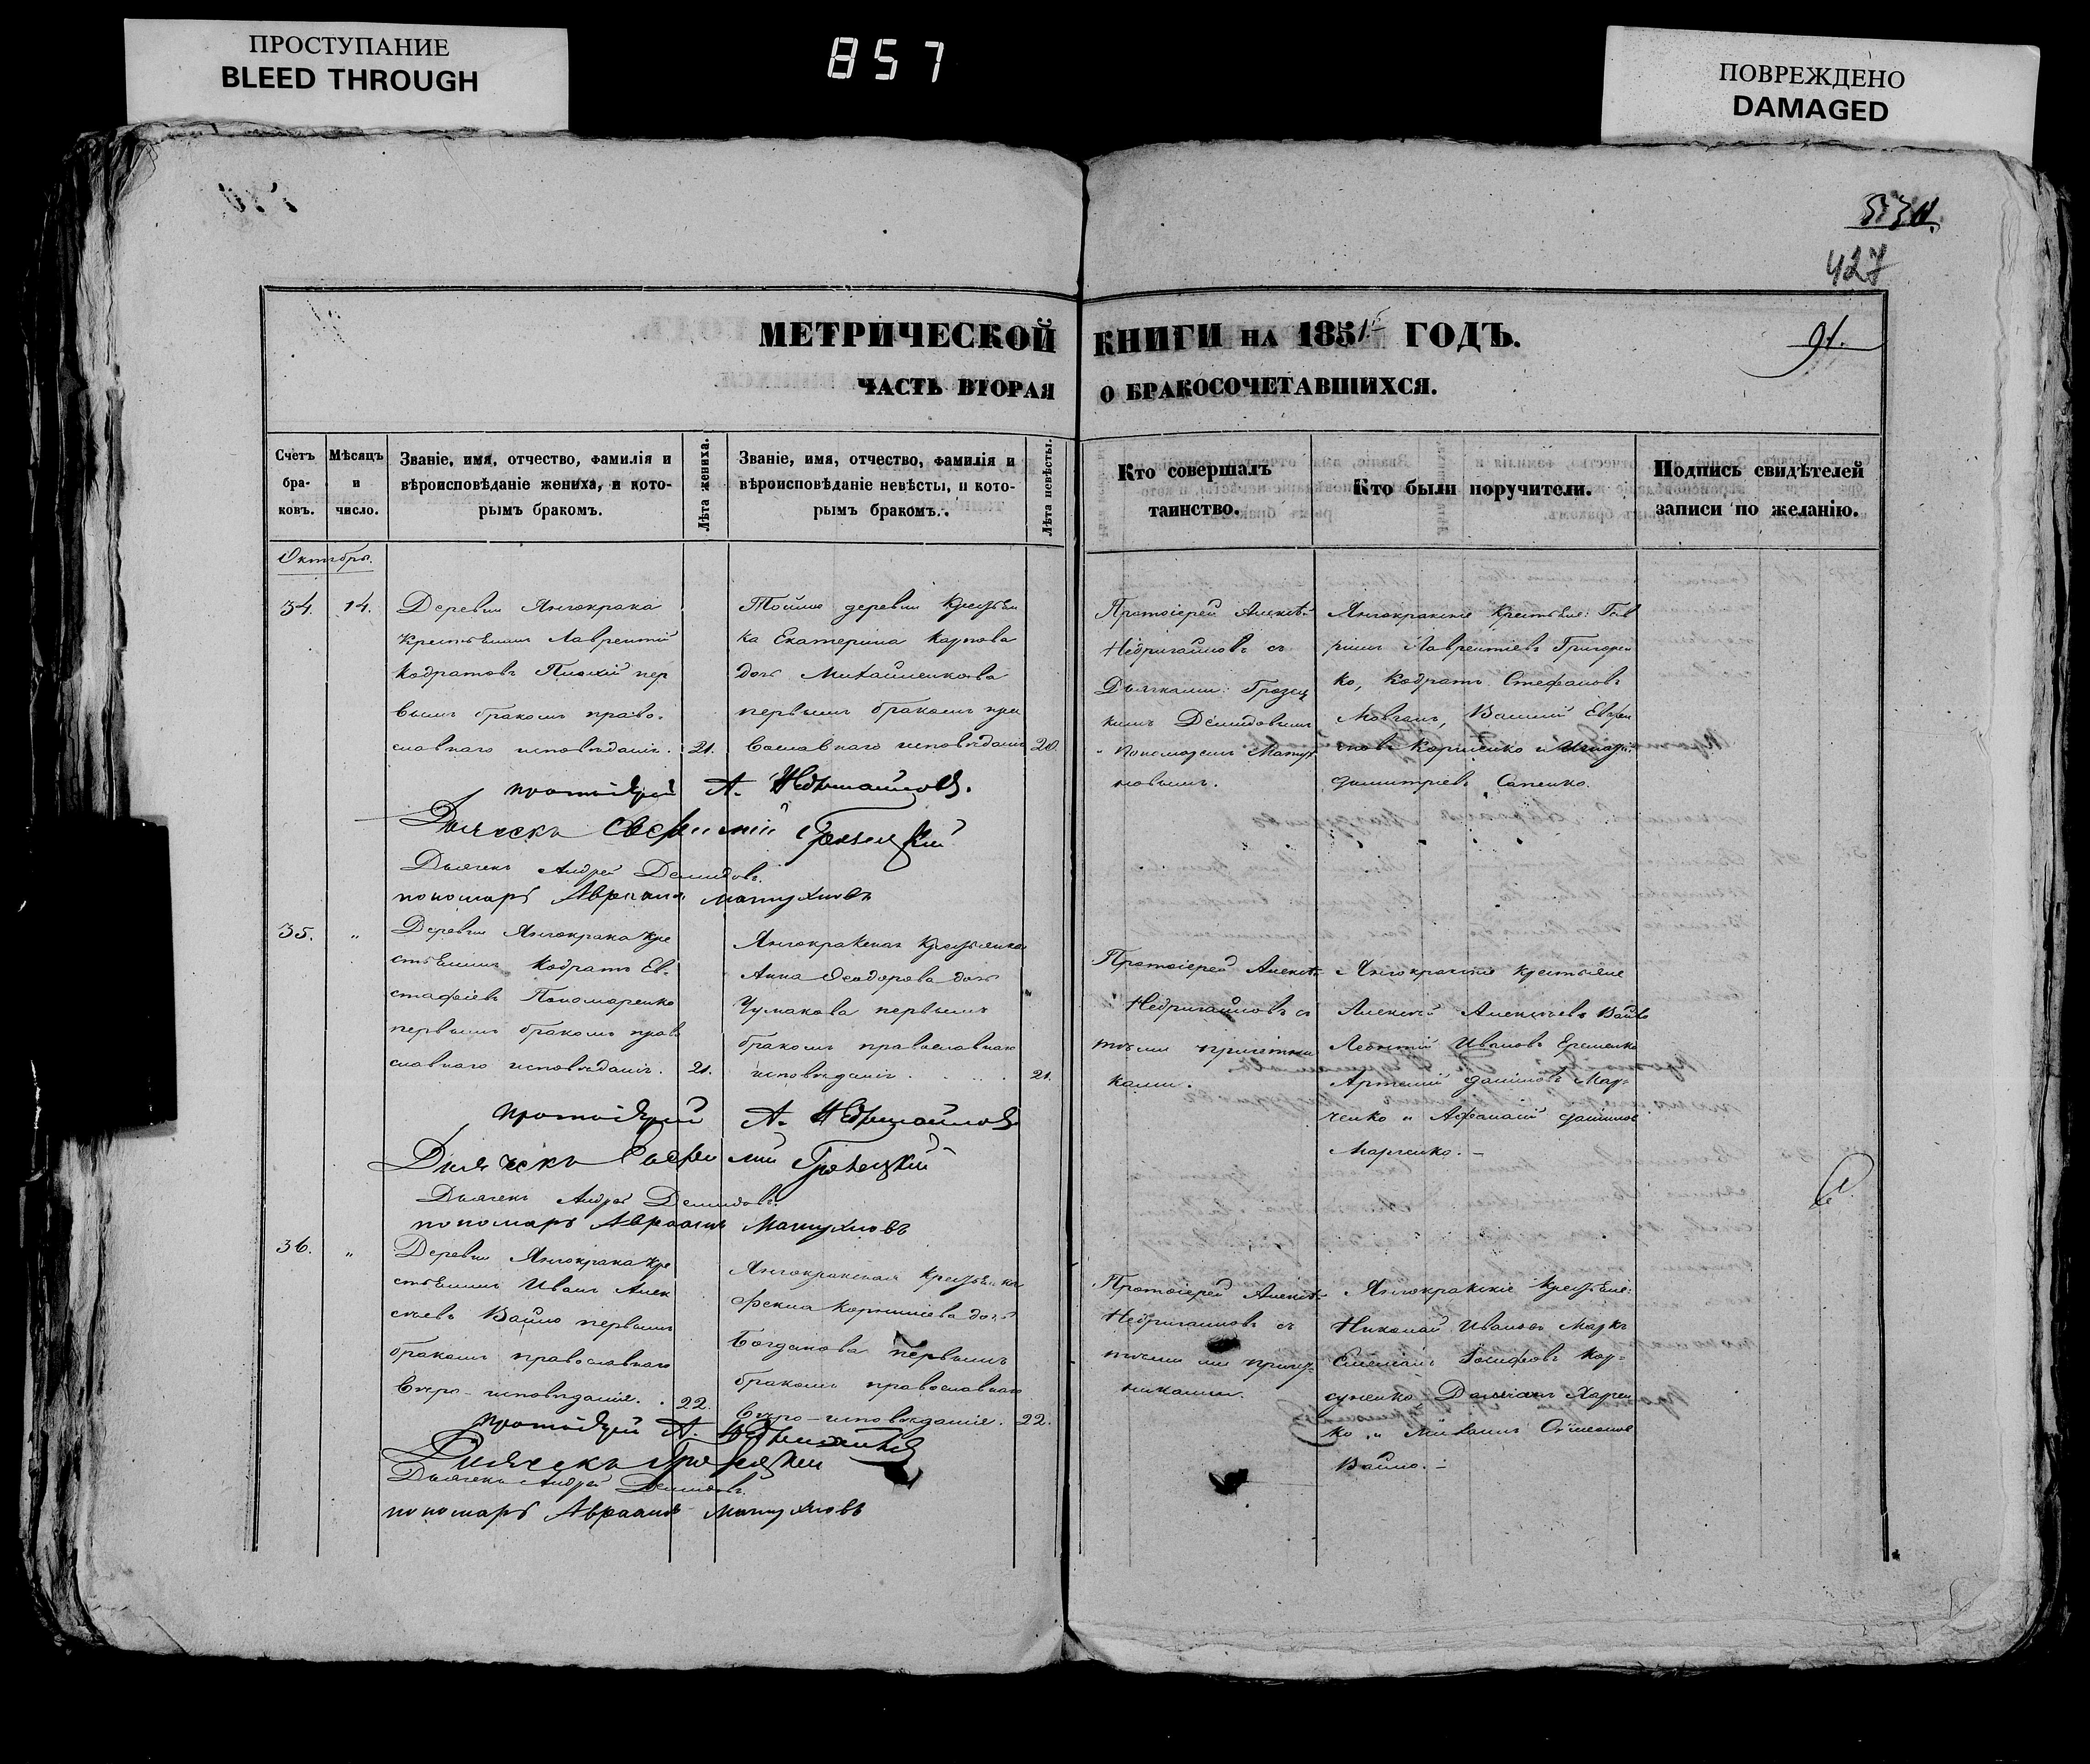 ПРОСТУПАНИЕ
BLEED THROUGH
857
ПОВРЕЖДЕНО
DAMAGED
427
МЕТРИЧЕСКОЙ КНИГИ НА 1851 ГОДЪ.
91.
ЧАСТЬ ВТОРАЯ О БРАКОСОЧЕТАВШИХСЯ.
Счетъ
бра-
ковъ.
Мѣсяцъ
и
число.
Званіе, имя, отчество, фамилія и
вѣроисповѣданіе жениха, и кото-
рымъ бракомъ.
Лѣта жениха.
Званіе, имя, отчество, фамилія и
вѣроисповѣданіе невѣсты, и кото-
рымъ бракомъ.
Лѣта невѣсты.
Кто совершалъ
таинство.
Кто были поручители.
Подпись свидѣтелей
записи по желанію.
Октябрь.
34.
14.
Деревни Янчокрака
крестьянинъ Лаврентій
Кодратовъ Плохій пер
вымъ бракомъ право-
славнаго исповѣданія.
21.
Тойже деревни крестьян
ка Екатерина Карпова
дочь Михайленкова
первымъ бракомъ пра
вославнаго исповѣданія
20.
Протоіерей Алексѣй
Недригайловъ съ
Дьячками: Грозец
кимъ Демидовымъ
и пономаремъ Матух
новымъ.
Янчокракскіе крестьяне:
Лаврентіевъ Григорен
ко, Кодратъ Стефановъ
Мовчанъ, Василій
Корніенко и Игнатій
Димитріевъ Сапенко.
протоіерей А. Недригайловъ.
Дьячекъ Грозецкій
Дьячекъ Андрей Демидовъ.
пономарь Авраамъ Матухновъ
35.
"
Деревни Янчокрака кре
стьянинъ Кодратъ Ев-
стафіевъ Пономаренко
первымъ бракомъ право
славнаго исповѣданія.
21.
Янчокракская крестьянка
Анна Феодорова дочь
Чумакова первымъ
бракомъ православнаго
исповѣданія
21.
Протоіерей Алексѣй
Недригайловъ съ
тѣми причетни
ками.
Янчокракскіе крестьяне
Алексѣй Алексѣевъ Вайло
Леонтій Ивановъ Еременко
Артемій Даниловъ Мар
ченко и Афанасій Даниловъ
Марченко. -
протоіерей А. Недригайловъ
Дьячекъ Грозецкій
Дьячекъ Андрей Демидовъ.
пономарь Авраамъ Матухновъ
36.
"
Деревни Янчокрака кре
стьянинъ Иванъ Алек
сѣевъ Вайло первымъ
бракомъ православнаго
вѣро-исповѣданія.
22.
Янчокракская крестьянка
Фекла Корниліева дочь
Богданова первымъ
бракомъ православнаго
вѣро-исповѣданія.
22.
Протоіерей Алексѣй
Недригайловъ съ
тѣми же причет-
никами.
Янчокракскіе крестьяне:
Николай Ивановъ
Іосифовъ Кар-
суненко
ко и Михаилъ Симеоновъ
Вайло. -
протоіерей А. Недригайловъ
Дьячекъ Грозецкій
Дьячекъ Андрей Демидовъ.
пономарь Авраамъ Матухновъ